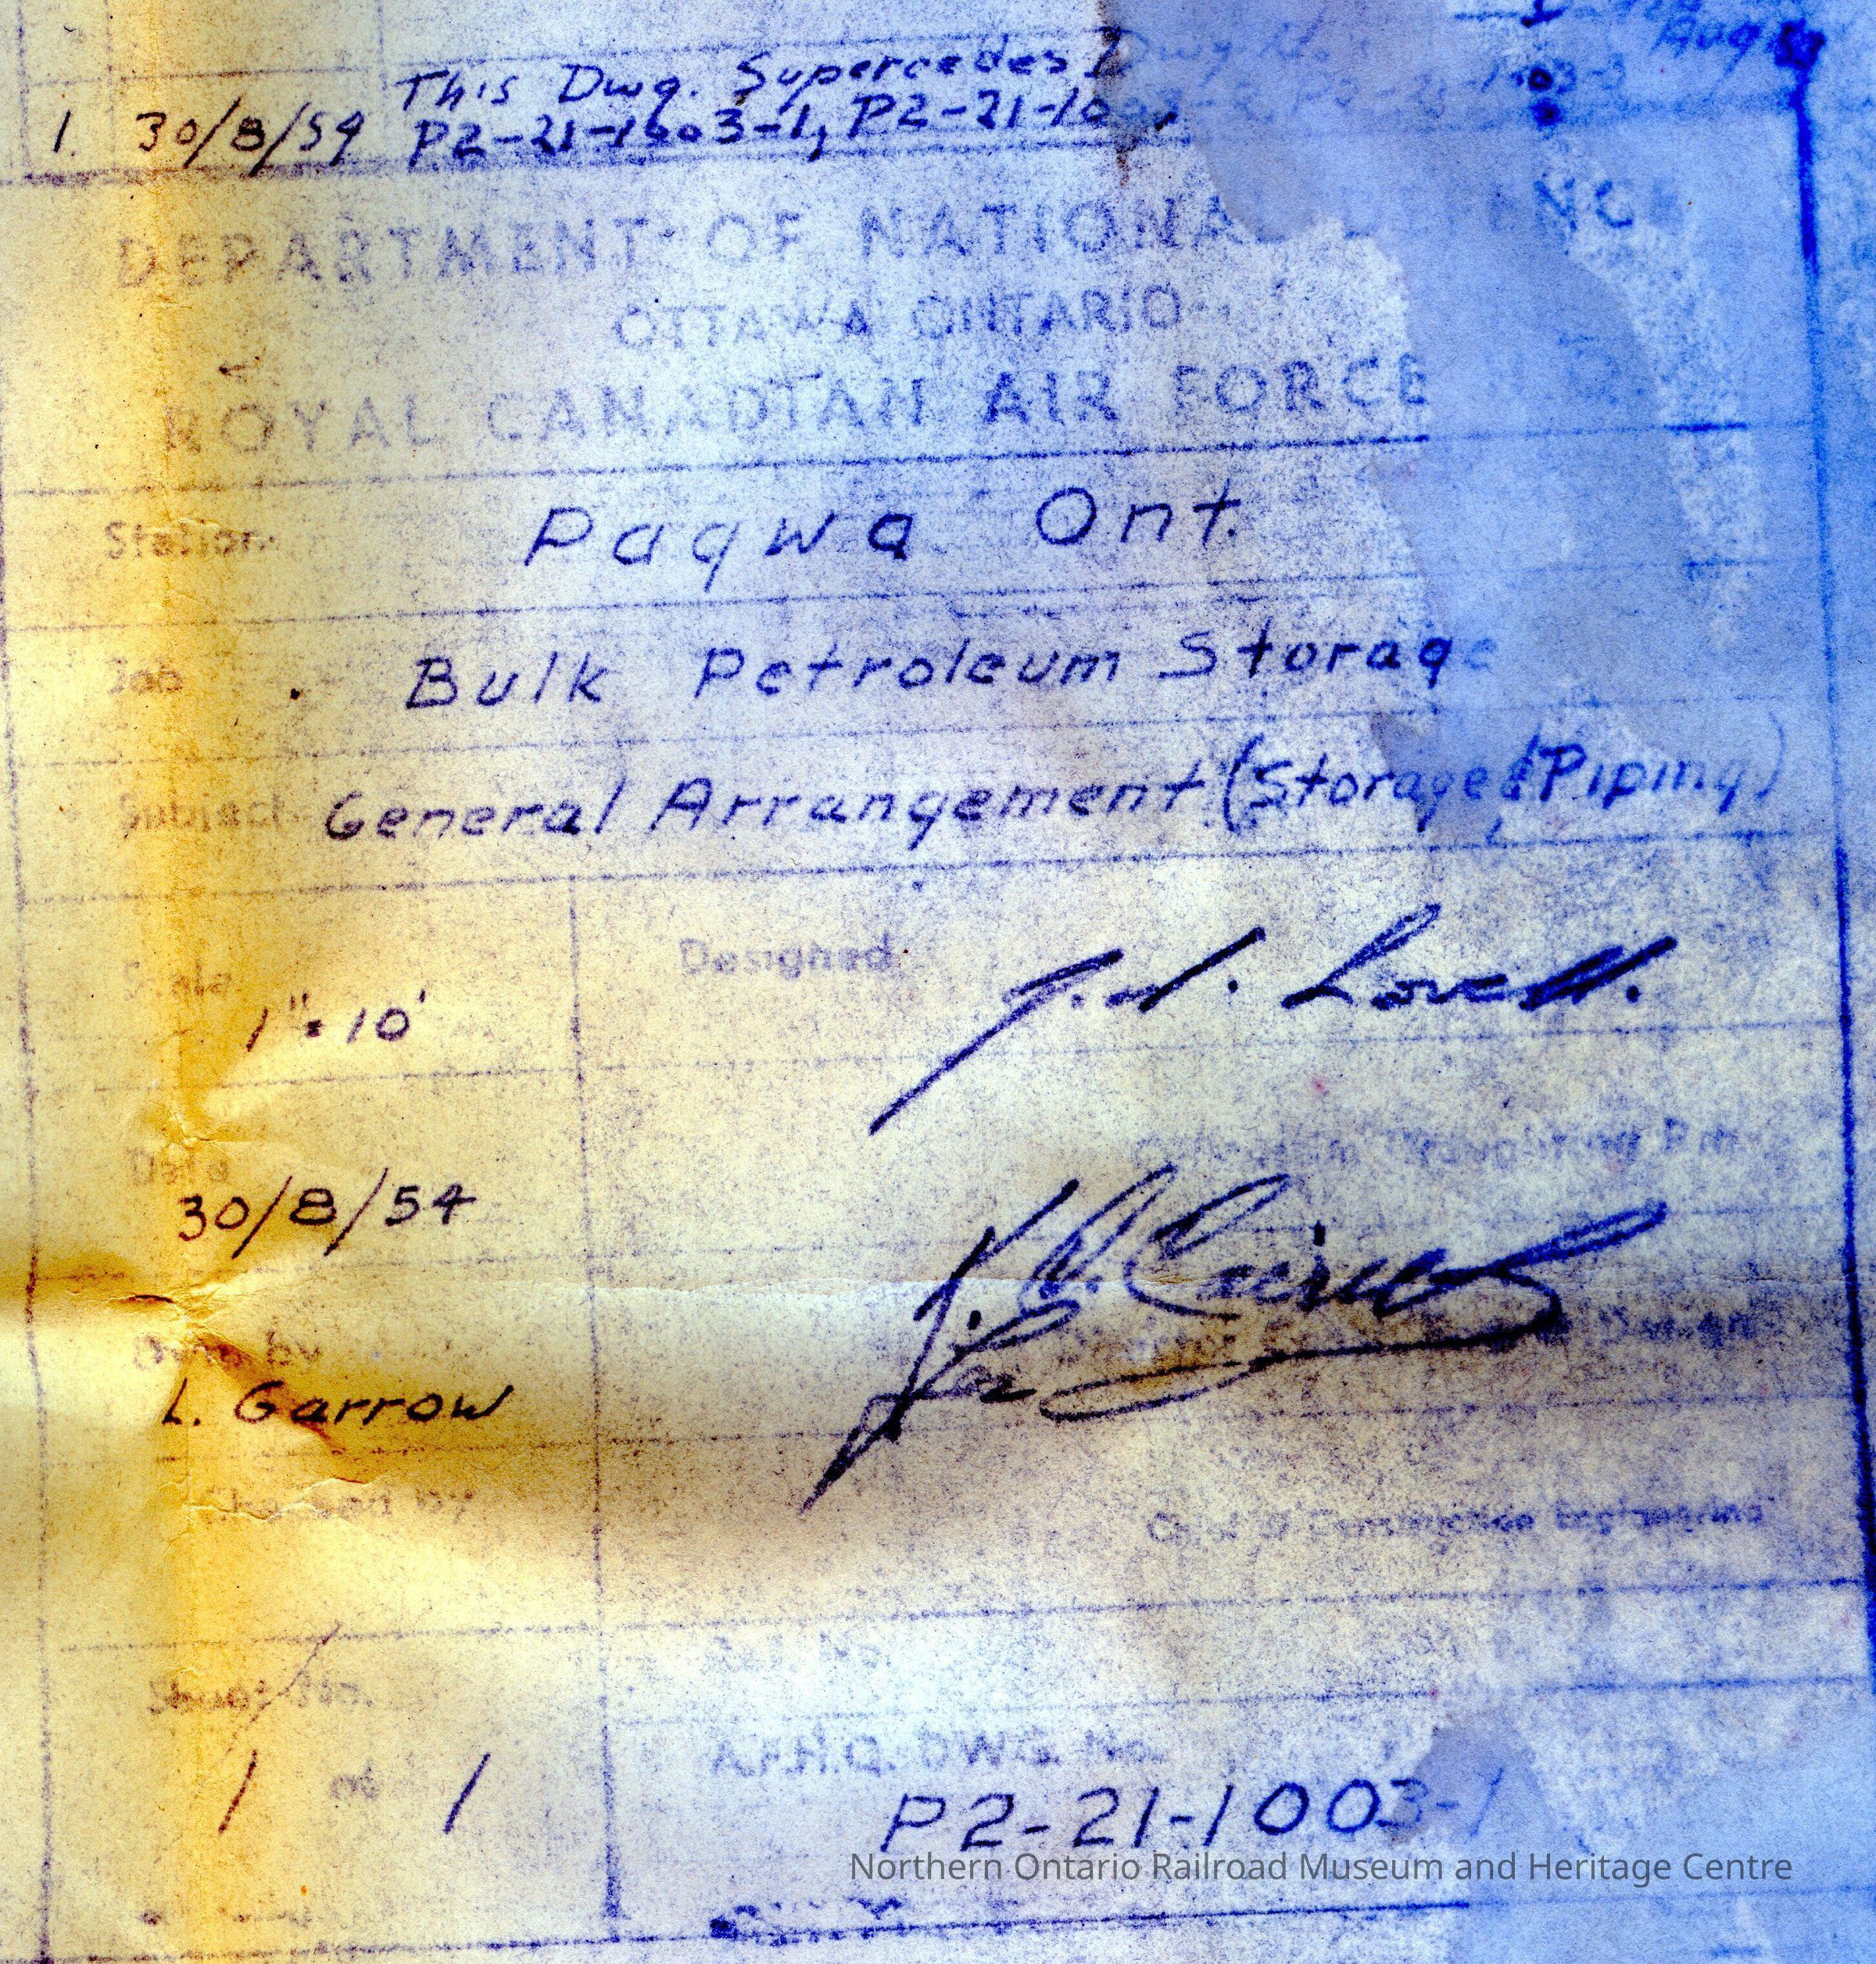 Aug
This Dwg. Supercedes Dwg
1. 30/8/54 P2-21-1003-1, P2-21-10
DEPARTMENT OF NATIONAL
OTTAWA ONTARIO
ROYAL CANADIAN AIR FORCE
Station Pagwa Ont.
Job Bulk Petroleum Storage
Subject General Arrangement (Storage & Piping)
Scale Designed
1" = 10' Lovell.
Date
30/8/54
Dwn by
L. Garrow
Checked by
Chief of Construction Engineering
Sheet No.
A.F.H.Q. DWG. No.
1 of 1 P2-21-1003-1
Northern Ontario Railroad Museum and Heritage Centre